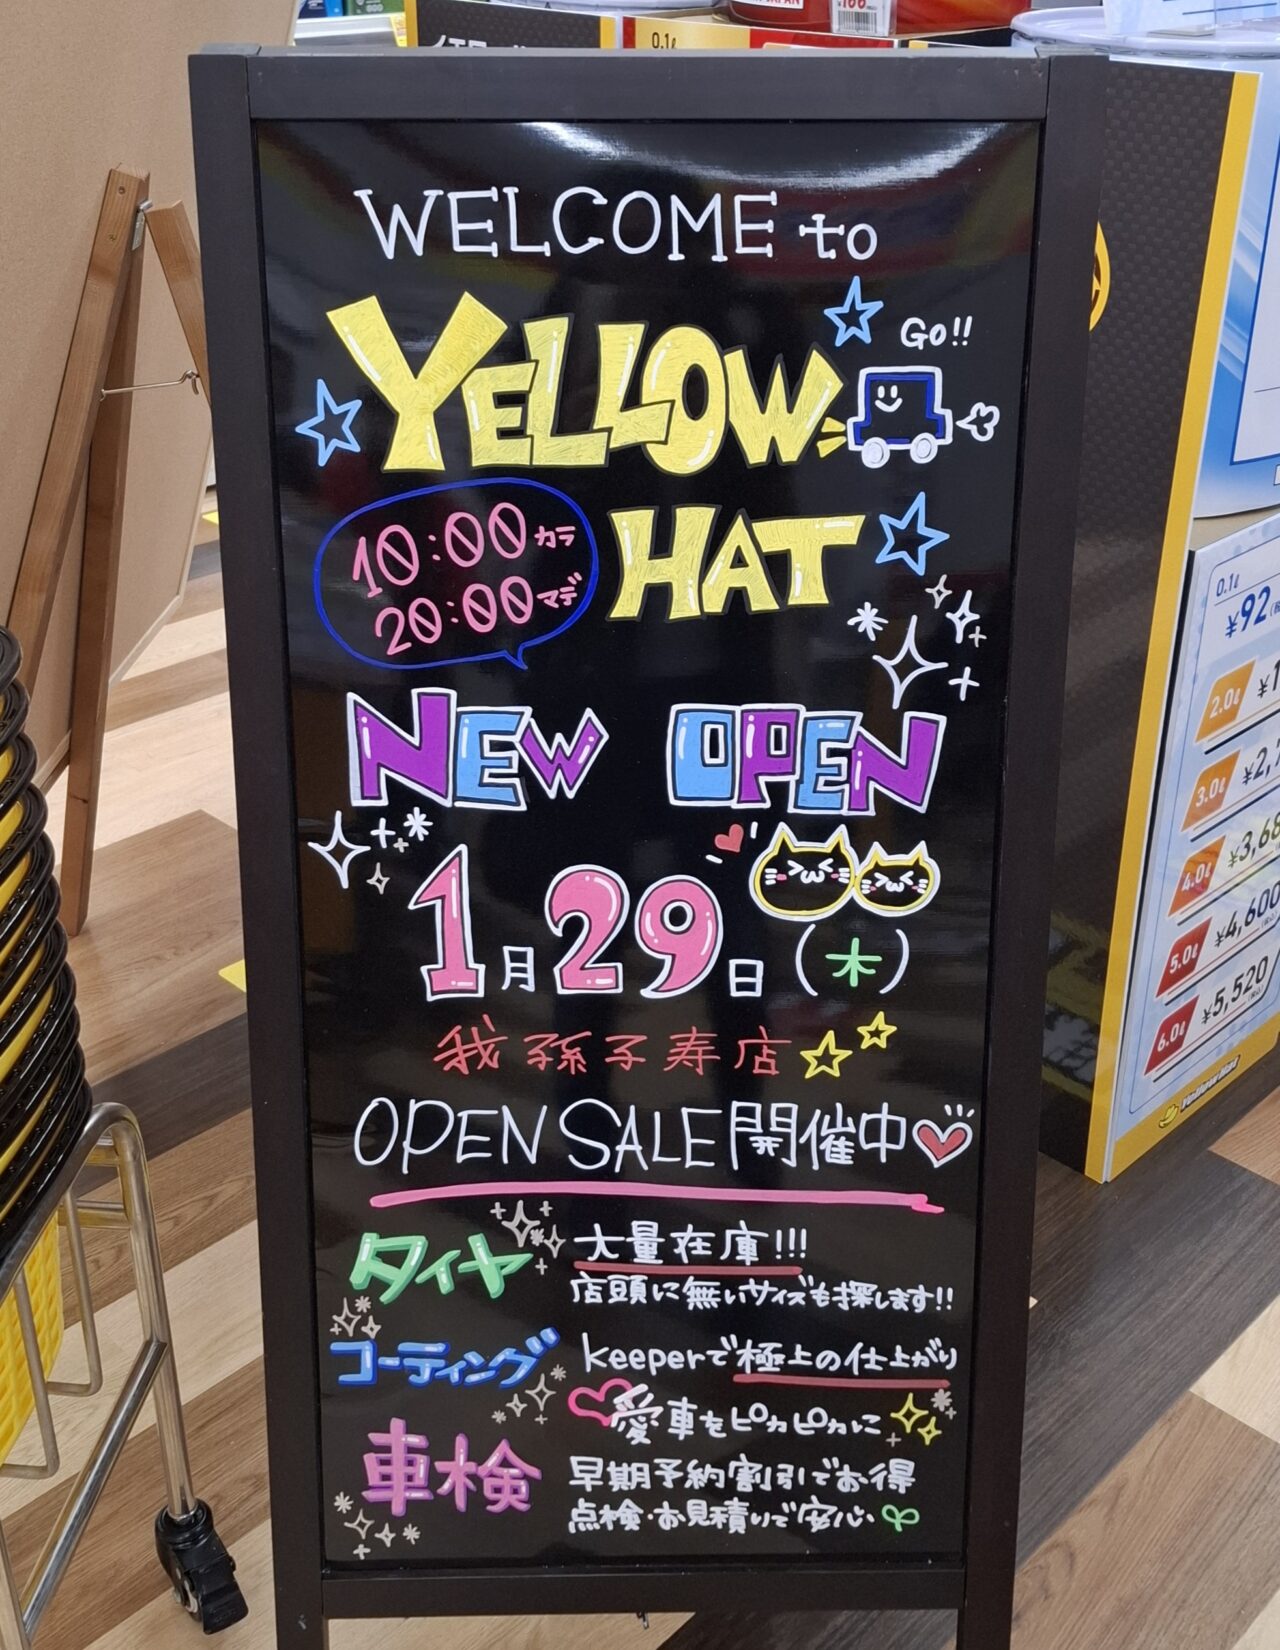 WELCOME to
YELLOW
Go!!
10:00カラ
20:00マデ
HAT
NEW OPEN
1月29日(木)
我孫子寿店
OPEN SALE開催中
タイヤ
大量在庫!!!
店頭に無いサイズも探します!!
コーティング
keeperで極上の仕上がり
愛車をピカピカに
車検
早期予約割引でお得
点検・お見積りで安心
0.1ℓ
0.1ℓ
¥92
2.0ℓ
3.0ℓ
¥2,
4.0ℓ
¥3,68
5.0ℓ
¥4,600
6.0ℓ
¥5,520
Yellow Hat